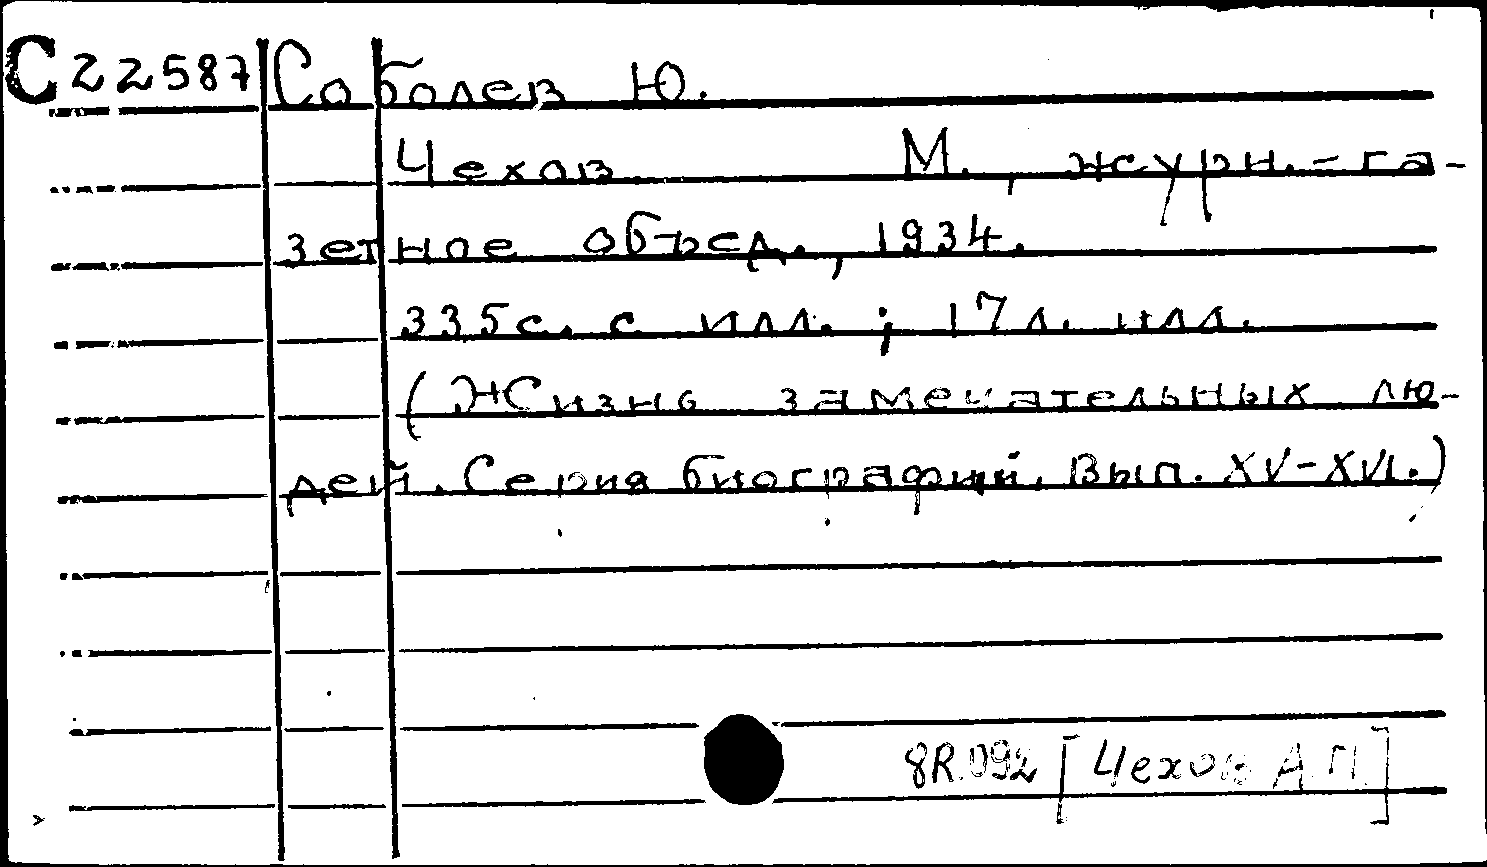 С 22587 Соболев Ю.
Чехов М., журн.-га-
зетное объед., 1934.
335 с. с илл.; 17 л. илл.
(Жизнь замечательных лю-
дей. Серия биографий. Вып. XV-XVI.)
8R.092 [Чехов А.П.]